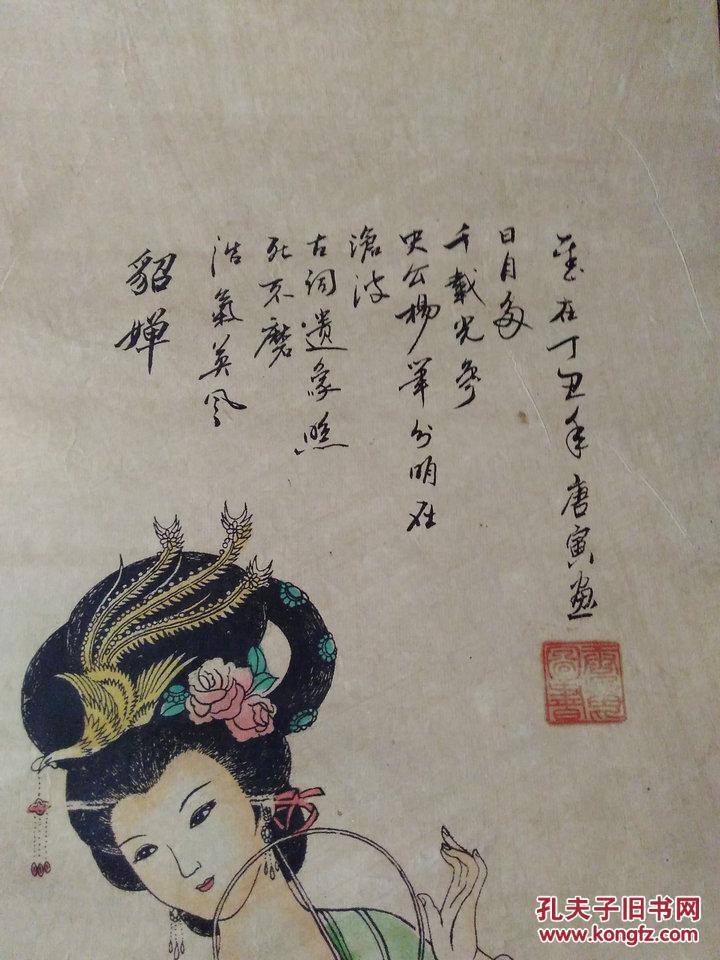 貂婵
浩氣英风
死不磨
古祠遗像照
滄波
史公 筆分明在
千載光争
日月多
歲在丁丑年唐寅画
孔夫子旧书网
www.kongfz.com